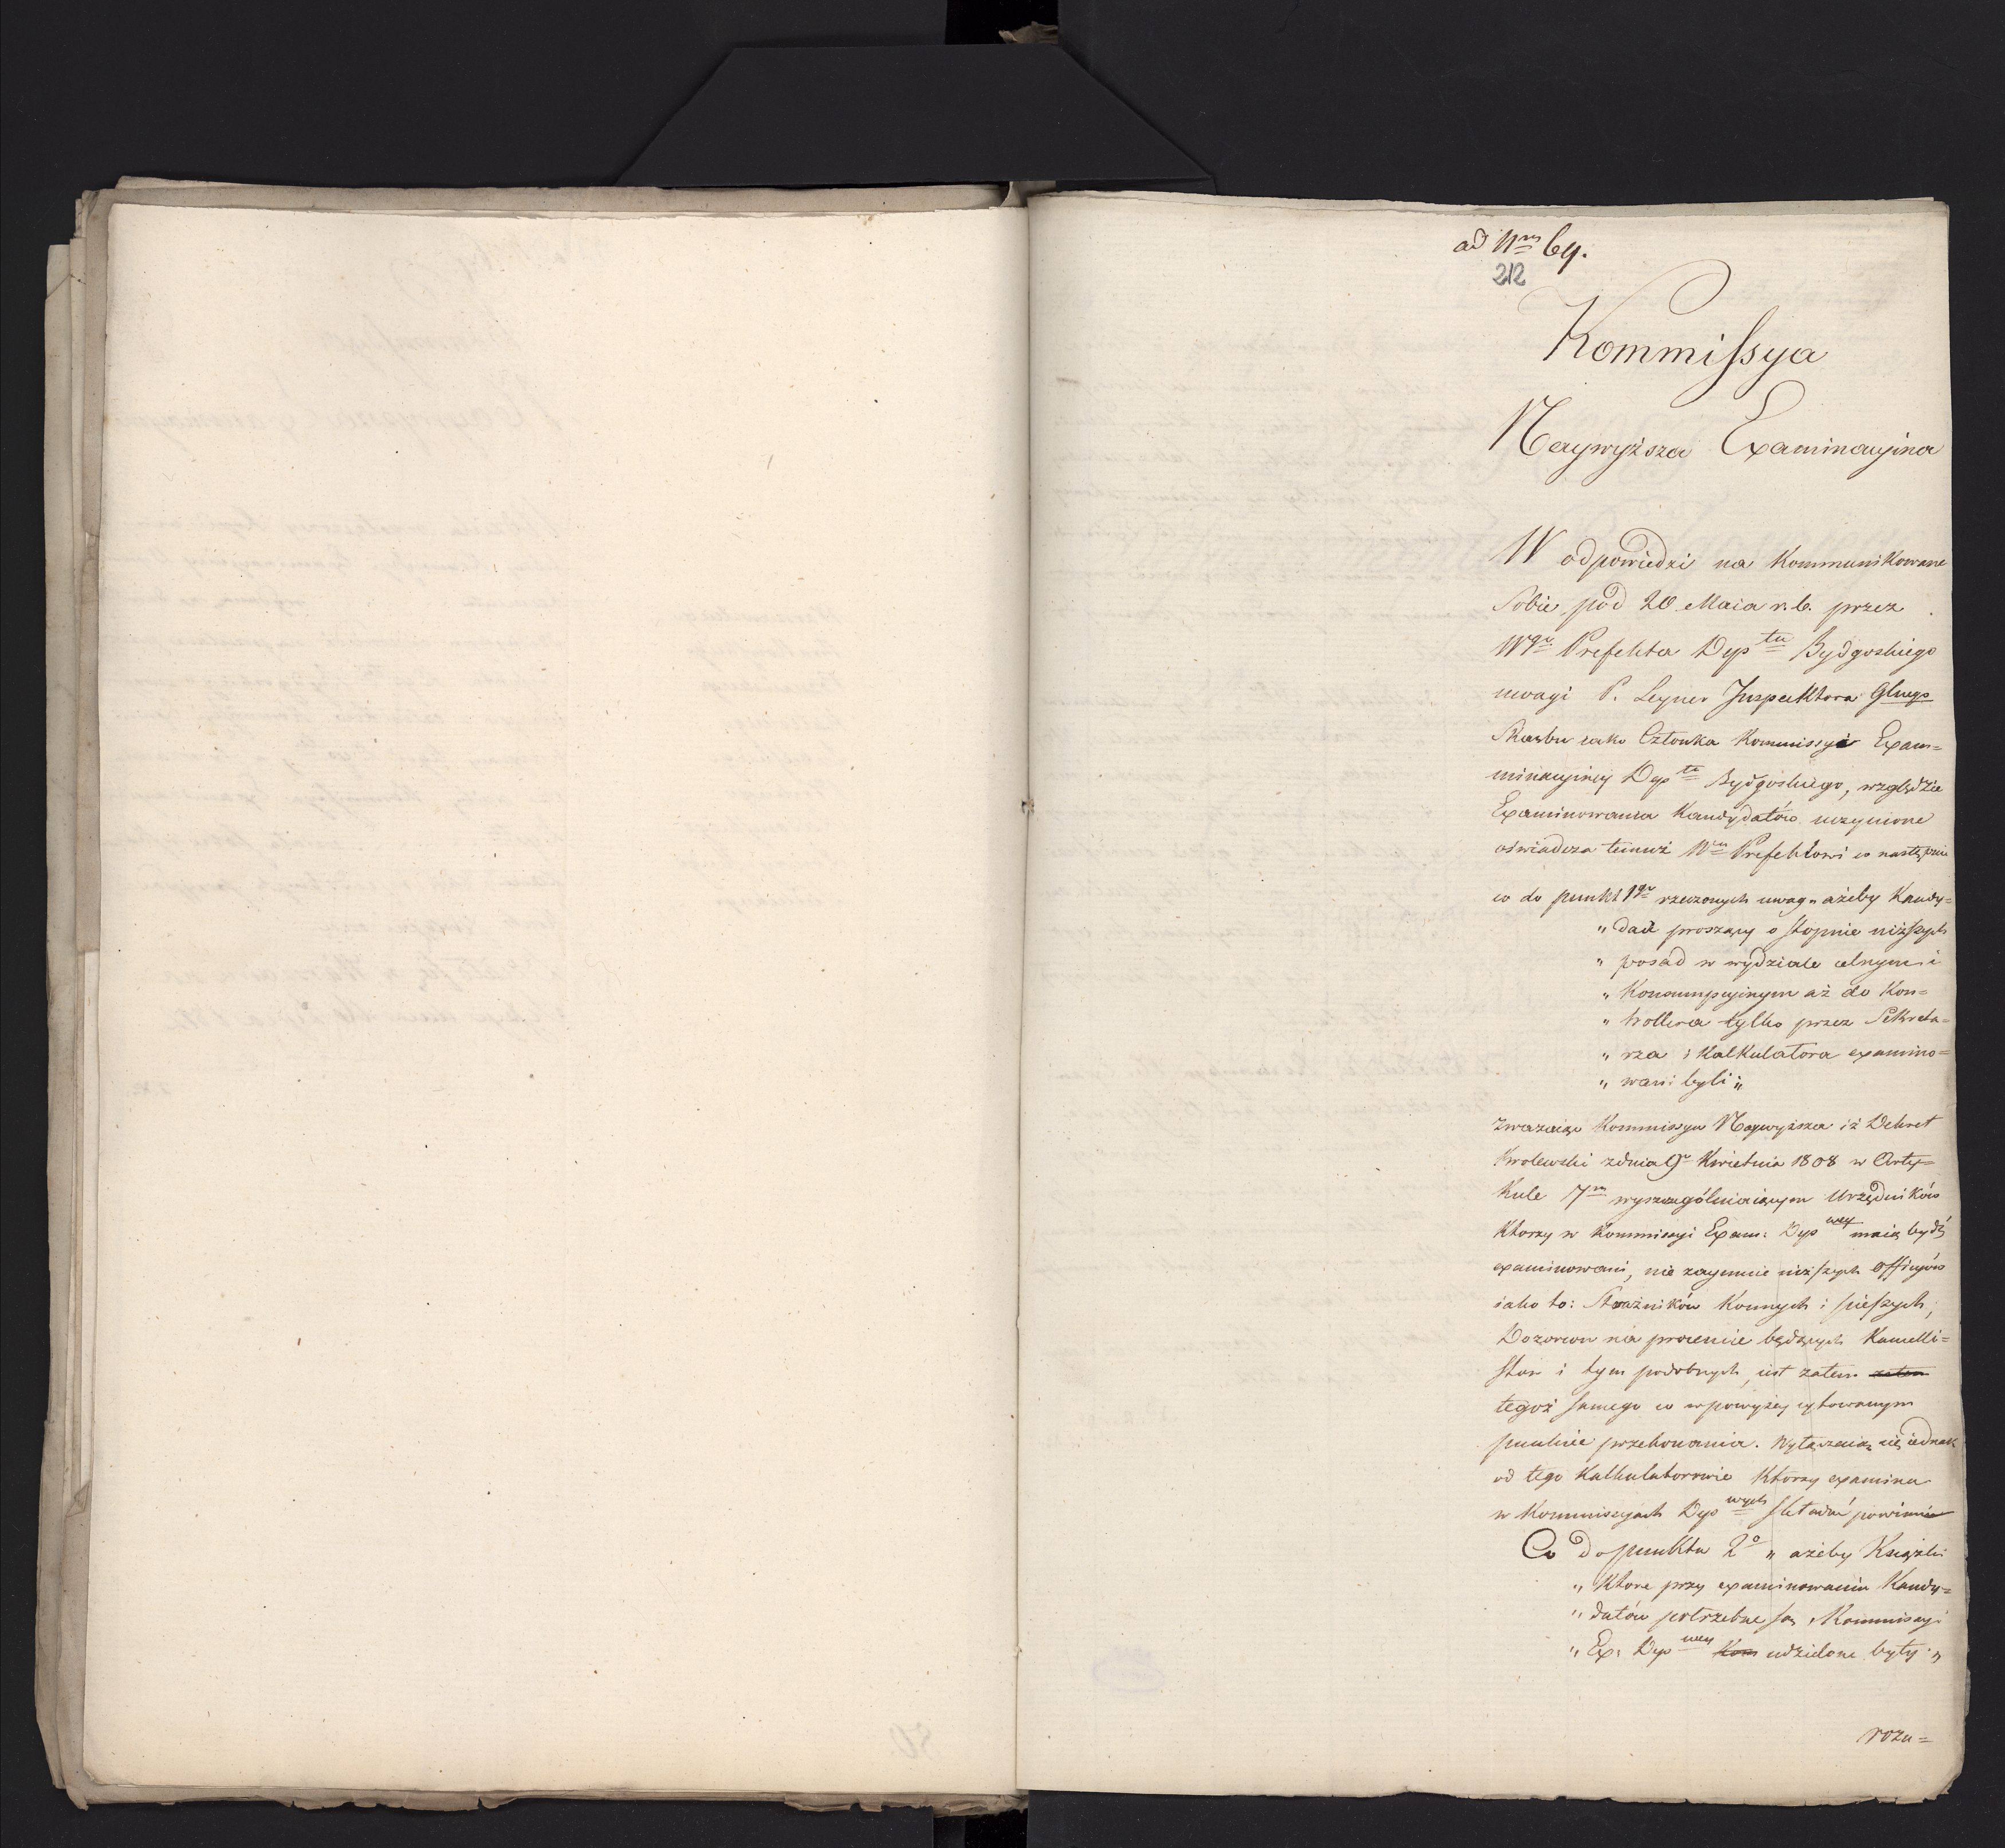 ad Nrm 64.
212
Kommissya
Naywyższa Examinacyina
W odpowiedzi na Kommunikowane
Sobie pod 20 Maia r. b. przez
Wgo Prefekta Depttu Bydgoskiego
uwagi P. Leyner Inspektora Glnego
Skarbu iako Członka Kommissyi Exam=
minacyiney Deptu Bydgoskiego, względzie
Examinowania Kandydatów uczynione
oświadcza temuż Wmu Prefektowi co następuie
co do punkt 1go rzeczonych uwag „ ażeby Kandy=
„ daci proszący o stopnie niższych
„ posad w wydziale celnym i
„ Konsumpcyinym aż do Kon=
„ trollera tylko przez Sekreta=
„ rza i Kalkulatora examino=
„ wani byli „
zważaiąc Kommissya Naywyższa iż Dekret
Krolewski z dnia 9go Kwietnia 1808 w Arty=
kule 7m wyszczególniaiącym Urzędników
Ktorzy w Kommissyi Exam: Depwey maią bydź
examinowani, nie zaymuie niższych Officyów
iako to: Strażników Konnych i pieszych,
Dozorcow na procencie będących Kancelli=
stow i tym podobnych, iest zatem zatem
tegoż samego co w powyżey cytowanym
punkcie przekonania. Wyłączaią się iednak
od tego Kalkulatorowie Ktorzy examina
w Kommissyach Depwych składać powinni
Co do punktu 2o „ ażeby Książki
„ Ktore przy examinowaniu Kandy=
„ datów potrzebne są, Kommissyi
„ Ex: Depwey Kom udzielone były „
rozu=